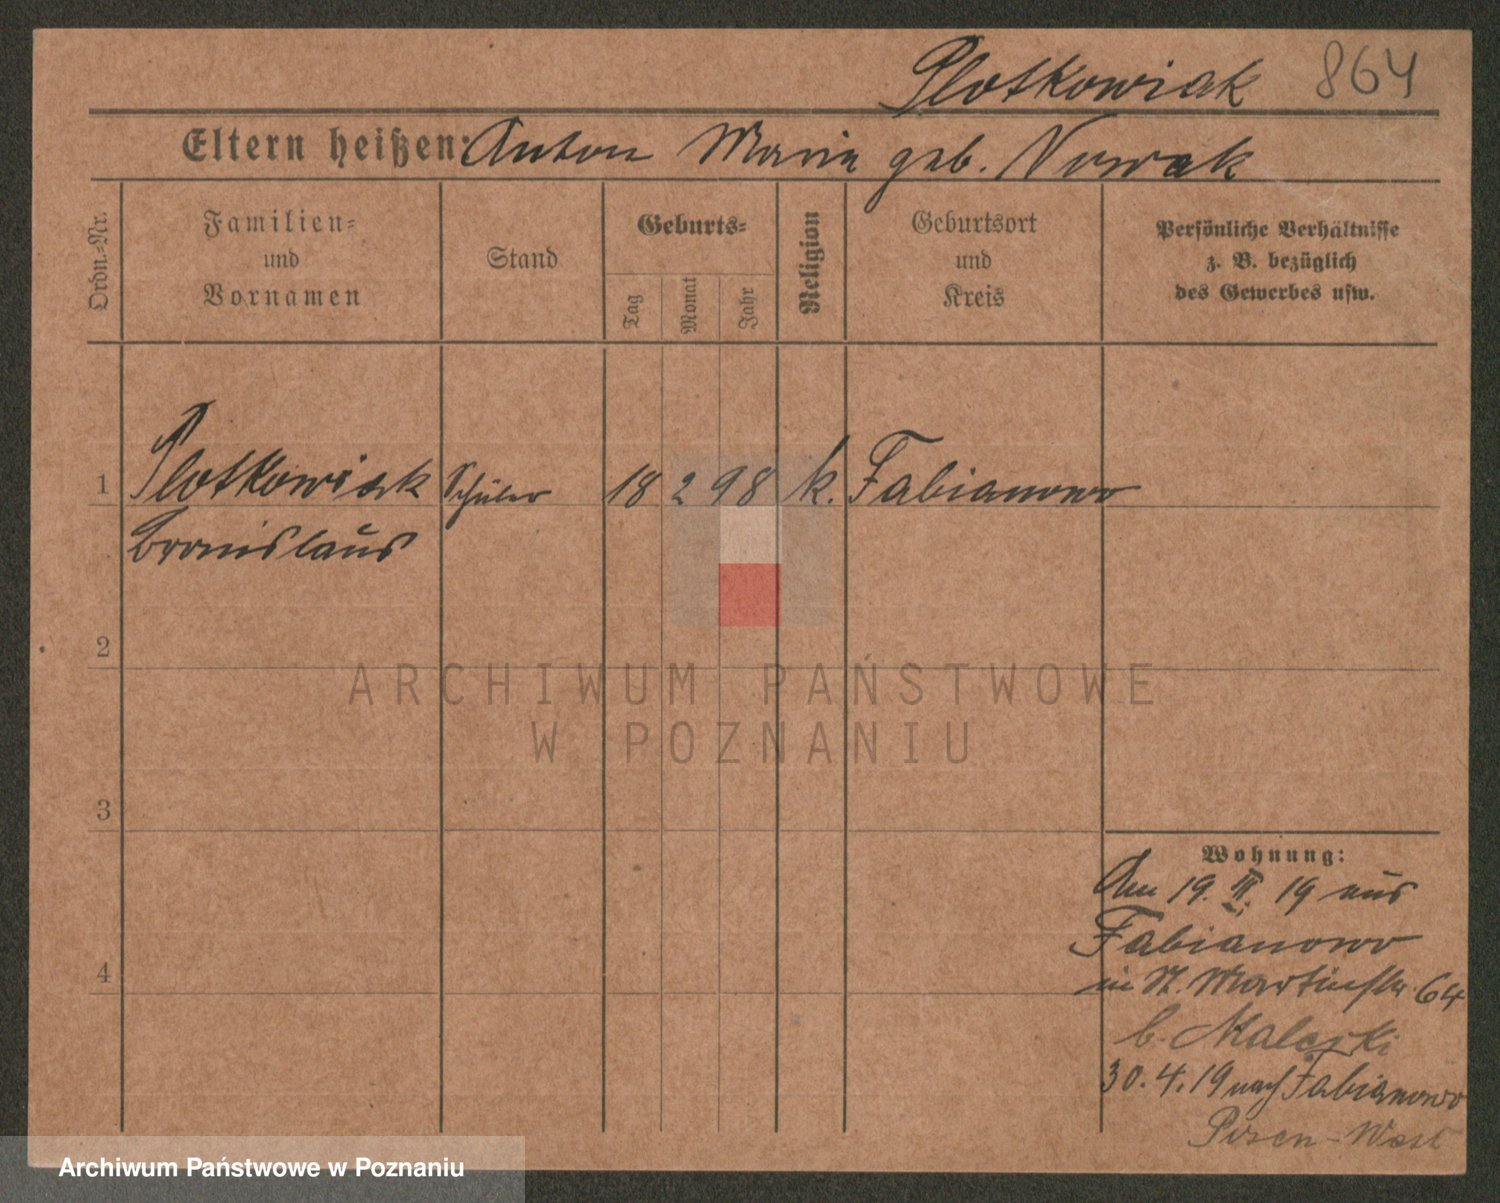 Plotkowiak 864
Eltern heißen: Anton Maria geb. Nowak
Ordn.-Nr.
Familien-
und
Vornamen
Stand
Geburts-
Tag
Monat
Jahr
Religion
Geburtsort
und
Kreis
Persönliche Verhältnisse
z. B. bezüglich
des Gewerbes usw.
1 Plotkowiak Schüler 18 2 98 k. Fabianowo
Bronislaus
2
3
4
ARCHIWUM PAŃSTWOWE
W POZNANIU
Wohnung:
Am 19. III. 19 aus
Fabianowo
in St. Martinstr. 64
b.
30.4.19 nach Fabianowo
Posen-West
Archiwum Państwowe w Poznaniu